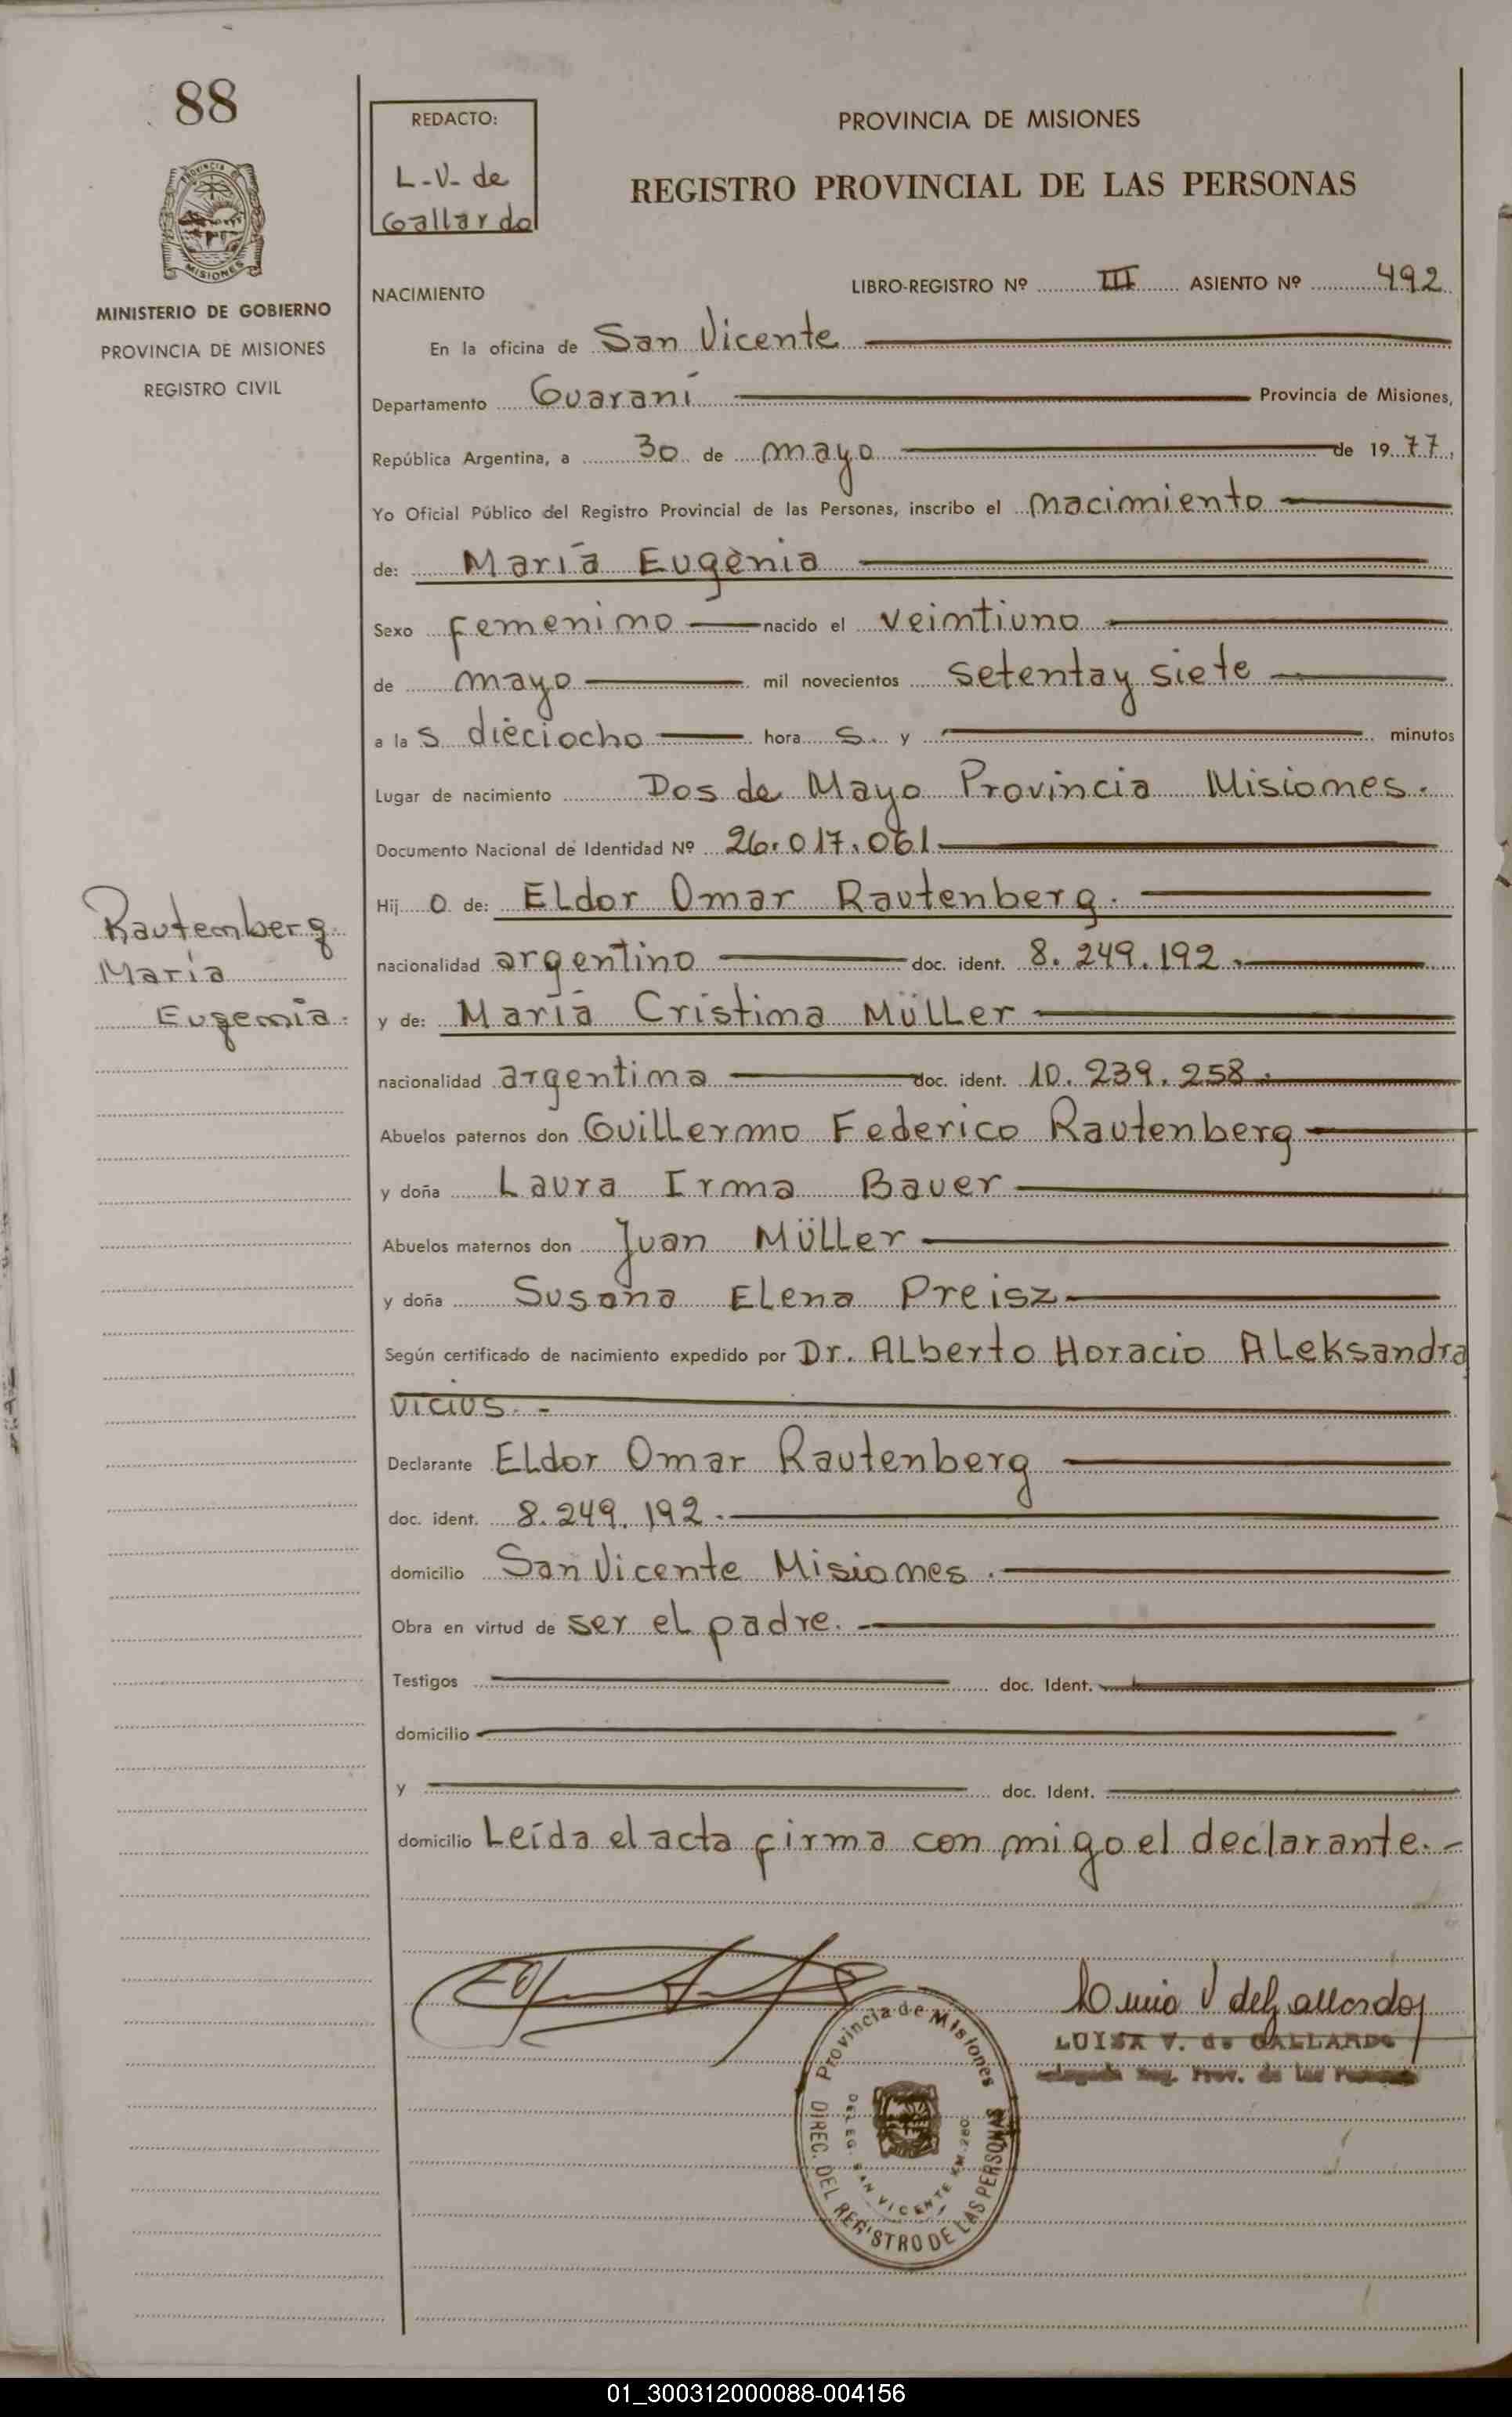 88
REDACTO:
L-V- de
Gallardo
PROVINCIA DE MISIONES
REGISTRO PROVINCIAL DE LAS PERSONAS
PROVINCIA
MISIONES
MINISTERIO DE GOBIERNO
PROVINCIA DE MISIONES
REGISTRO CIVIL
NACIMIENTO LIBRO-REGISTRO Nº III ASIENTO Nº 492
En la oficina de San Vicente
Departamento Guaraní Provincia de Misiones,
República Argentina, a 30 de mayo de 1977,
Yo Oficial Público del Registro Provincial de las Personas, inscribo el nacimiento
de: María Eugenia
Sexo femenino nacido el veintiuno
de mayo mil novecientos setenta y siete
a las dieciocho horas y minutos
Lugar de nacimiento Dos de Mayo Provincia Misiones.
Documento Nacional de Identidad Nº 26.017.061
Hijo de: Eldor Omar Rautenberg.
nacionalidad argentino doc. ident. 8.249.192.
y de: María Cristina Müller
nacionalidad argentina doc. ident. 10.239.258.
Abuelos paternos don Guillermo Federico Rautenberg
y doña Laura Irma Bauer
Abuelos maternos don Juan Müller
y doña Susana Elena Preisz
Según certificado de nacimiento expedido por Dr. Alberto Horacio Aleksandra
vicius.-
Declarante Eldor Omar Rautenberg
doc. ident. 8.249.192.
domicilio San Vicente Misiones.
Obra en virtud de ser el padre.-
Testigos doc. Ident.
domicilio
y doc. Ident.
domicilio Leída el acta firma con migo el declarante.-
Rautemberg.
María
Eugenia.
LUISA V. de GALLARDO
Delegada Reg. Prov. de las Personas
Provincia de Misiones
DIREC. DEL REGISTRO DE LAS PERSONAS
DELEG. SAN VICENTE KM. 280
01_300312000088-004156